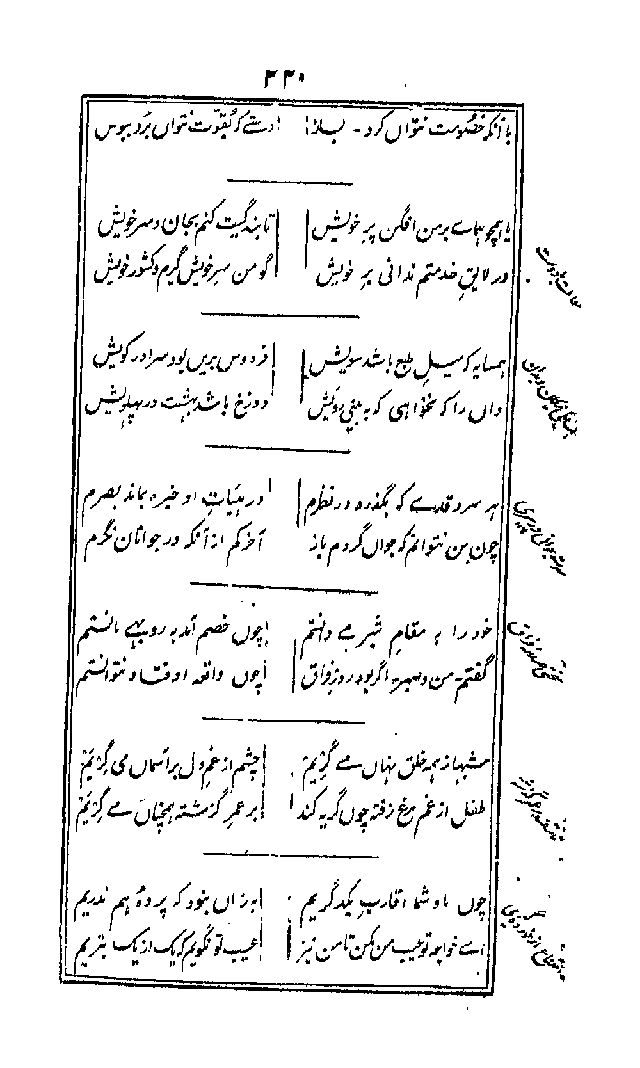 با آنکه خصومت نتوان کرد - بساز دستے کہ بقوت نتوان برد ببوس
یا ہمچو ہماے بر من افگن پر خویش تا بندگیت کنم بجان و سر خویش
ور لایق خدمتم ندانی بر خویش گو من سر خویش گیرم و کشور خویش
ہمسایہ کہ میل طبع باشد سویش فردوس برین بود سرا در کویش
وان را کہ نخواہی کہ بہ بینی رویش دوزخ باشد بہشت در پہلویش
ہر سرو قدے کہ بگذرد در نظرم در ہیأت او خیرہ بماند بصرم
چون من نتوانم کہ جوان گردم باز آخر کم از آنکہ در جوانان نگرم
خود را بہ مقام شیر مے دانستم چون خصم آمد بہ روبہے مانستم
گفتم من و صبر اگر بود روز فراق چون واقعہ افتاد و نتوانستم
شبہا ز ہمہ خلق نہان مے گریم چشم از غم دل بر آسمان می گریم
طفل از غم مرغ رفتہ چون گریہ کند بر عمر گزشتہ ہمچنان مے گریم
چون ما و شما اقارب یکدگریم بہ زان نبود کہ پردہ ہم ندریم
اے خواجہ تو عیب من مکن تا من نیز عیب تو نگویم کہ یک از یک بتریم